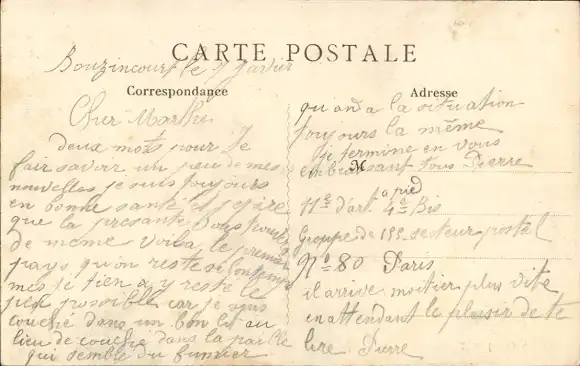 CARTE POSTALE
Correspondance
Bouzincourt le 9 Javier
Cher Marthe
deux mots pour te
fair savoir un peu de mes
nouvelles je suis toujours
en bonne santé et j'espère
que la presante vous
de même voila le premier
pays qu'on reste si longtemp
mes je tien a y resté le
plus possible car je suis
couché dans un bon lit au
lieu de couche dans la paille
qui semble du fumier
Adresse
quand a la situation
toujours la même
je termine en vous
embrassant tous Pierre
M
11e d'art a pied
4e Bis
Groupe de 155 secteur postal
No 80 Paris
il arrive moitier plus vite
en attendant le plaisir de te
lire Pierre